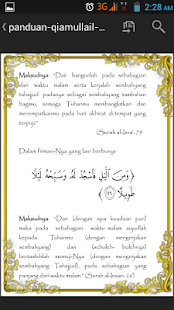 3G 2:28 AM
panduan-qiamullail-...
Maksudnya: "Dan bangunlah pada sebahagian
dari waktu malam serta kerjalah sembahyang
tahajjud padanya sebagai sembahyang tambahan
bagimu, semoga Tuhanmu membangkitkan dan
menempatkanmu pada hari akhirat di tempat yang
terpuji."
(Surah al-Isra': 79)
Dalam firman-Nya yang lain berbunyi
وَمِنَ ٱلَّيْلِ فَٱسْجُدْ لَهُۥ وَسَبِّحْهُ لَيْلًا
طَوِيلًا ﴿٢٦﴾
Maksudnya: "Dan (dengan apa keadaan pun)
maka pada sebahagian waktu malam sujudlah
kepada Tuhanmu (dengan mengerjakan
sembahyang) dan (seboleh- bolehnya)
bertasbihlah memuji-Nya (dengan mengerjakan
sembahyang Tahajjud), pada sebahagian yang
panjang dari waktu malam." (Surah al-Insan: 26)